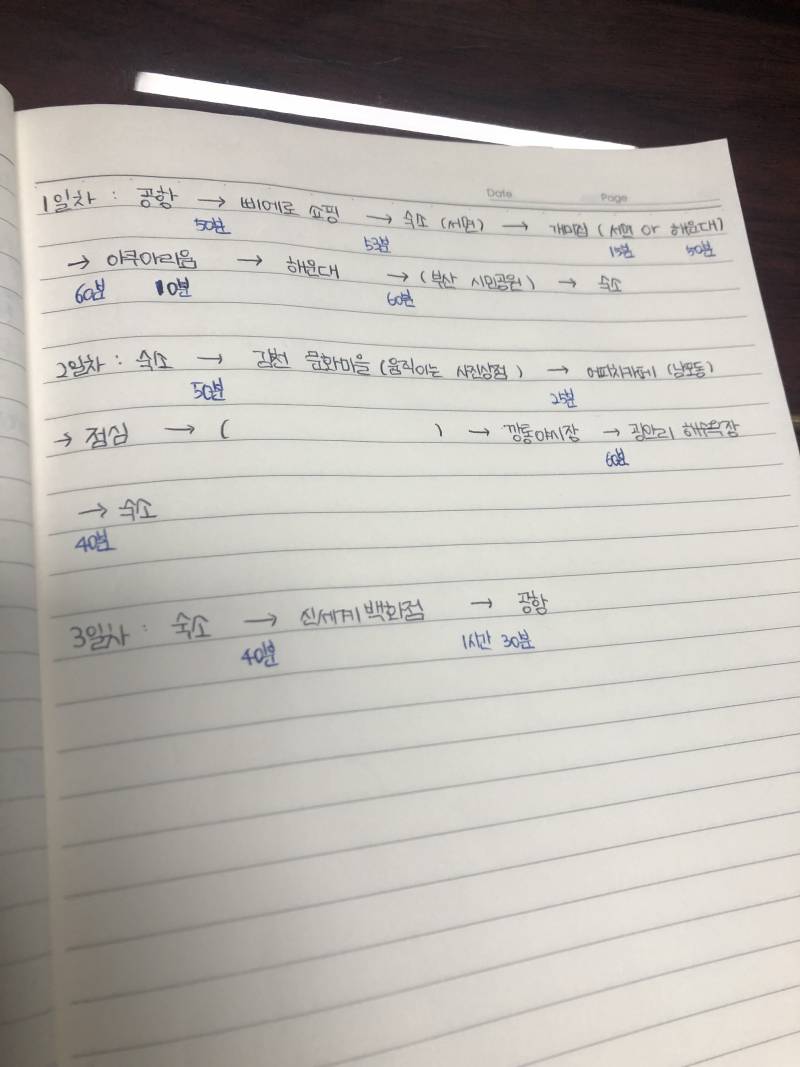 Date Page
1일차 : 공항 → 삐에로 쇼핑 → 숙소 (서면) → 개미집 (서면 or 해운대)
50분 53분 15분 50분
→ 아쿠아리움 → 해운대 → (부산 시민공원) → 숙소
60분 10분 60분
2일차 : 숙소 → 감천 문화마을 (움직이는 사진상점) → 어피치카페 (남포동)
50분 25분
→ 점심 → ( ) → 깡통야시장 → 광안리 해수욕장
60분
→ 숙소
40분
3일차 : 숙소 → 신세계 백화점 → 공항
40분 1시간 30분